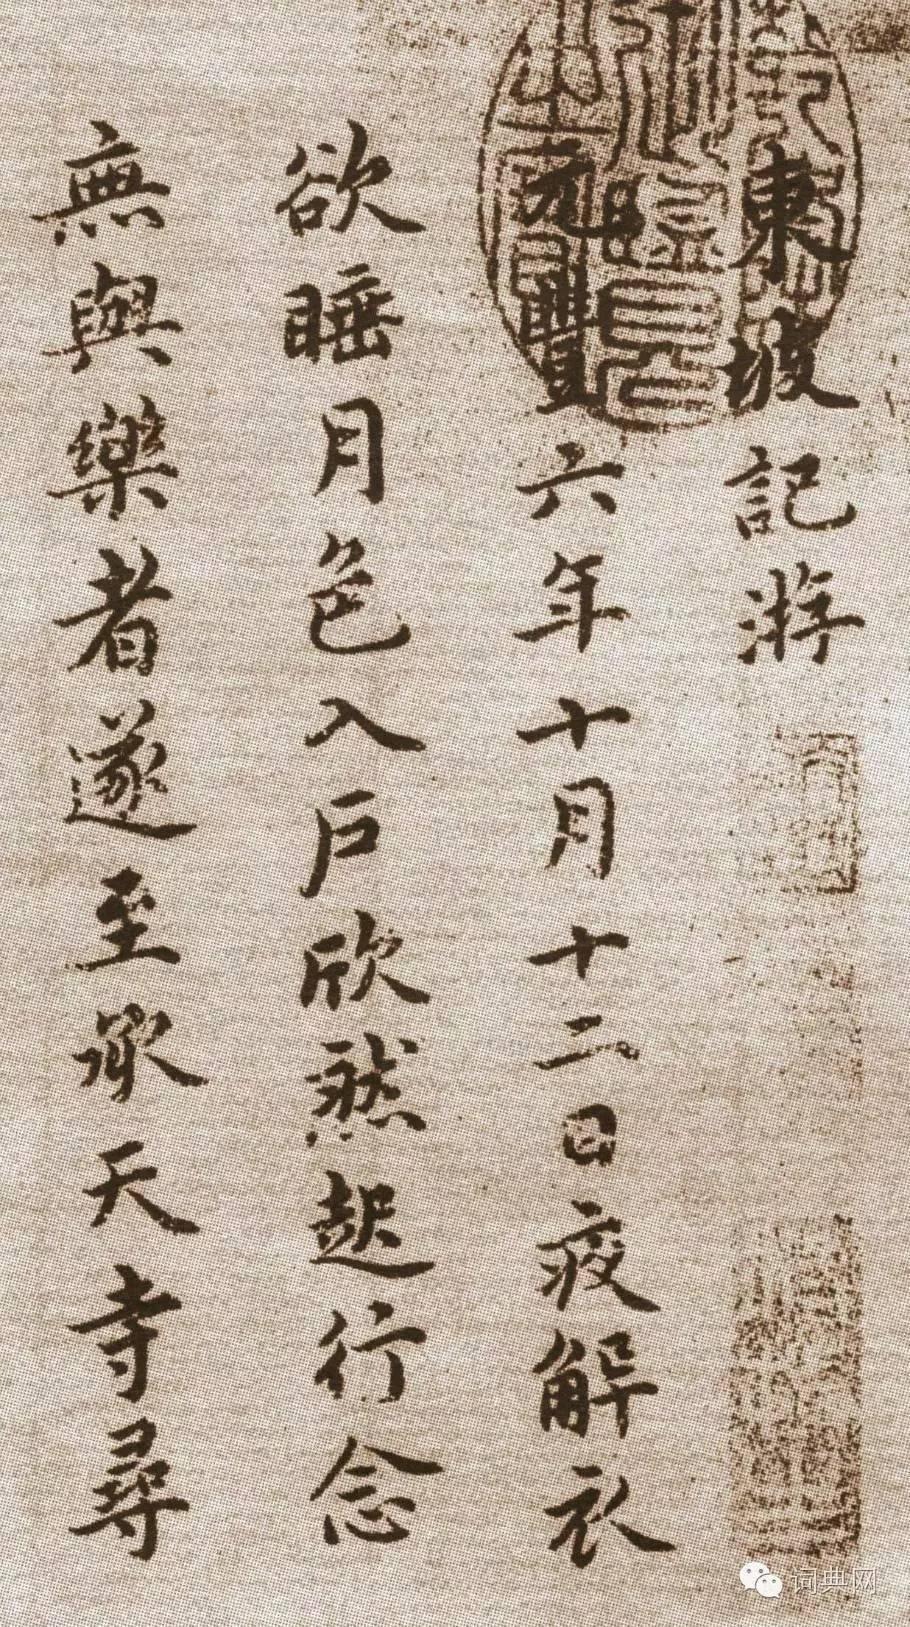 東坡記游
元豐六年十月十二日夜解衣
欲睡月色入户欣然起行念
無與樂者遂至承天寺尋
词典网